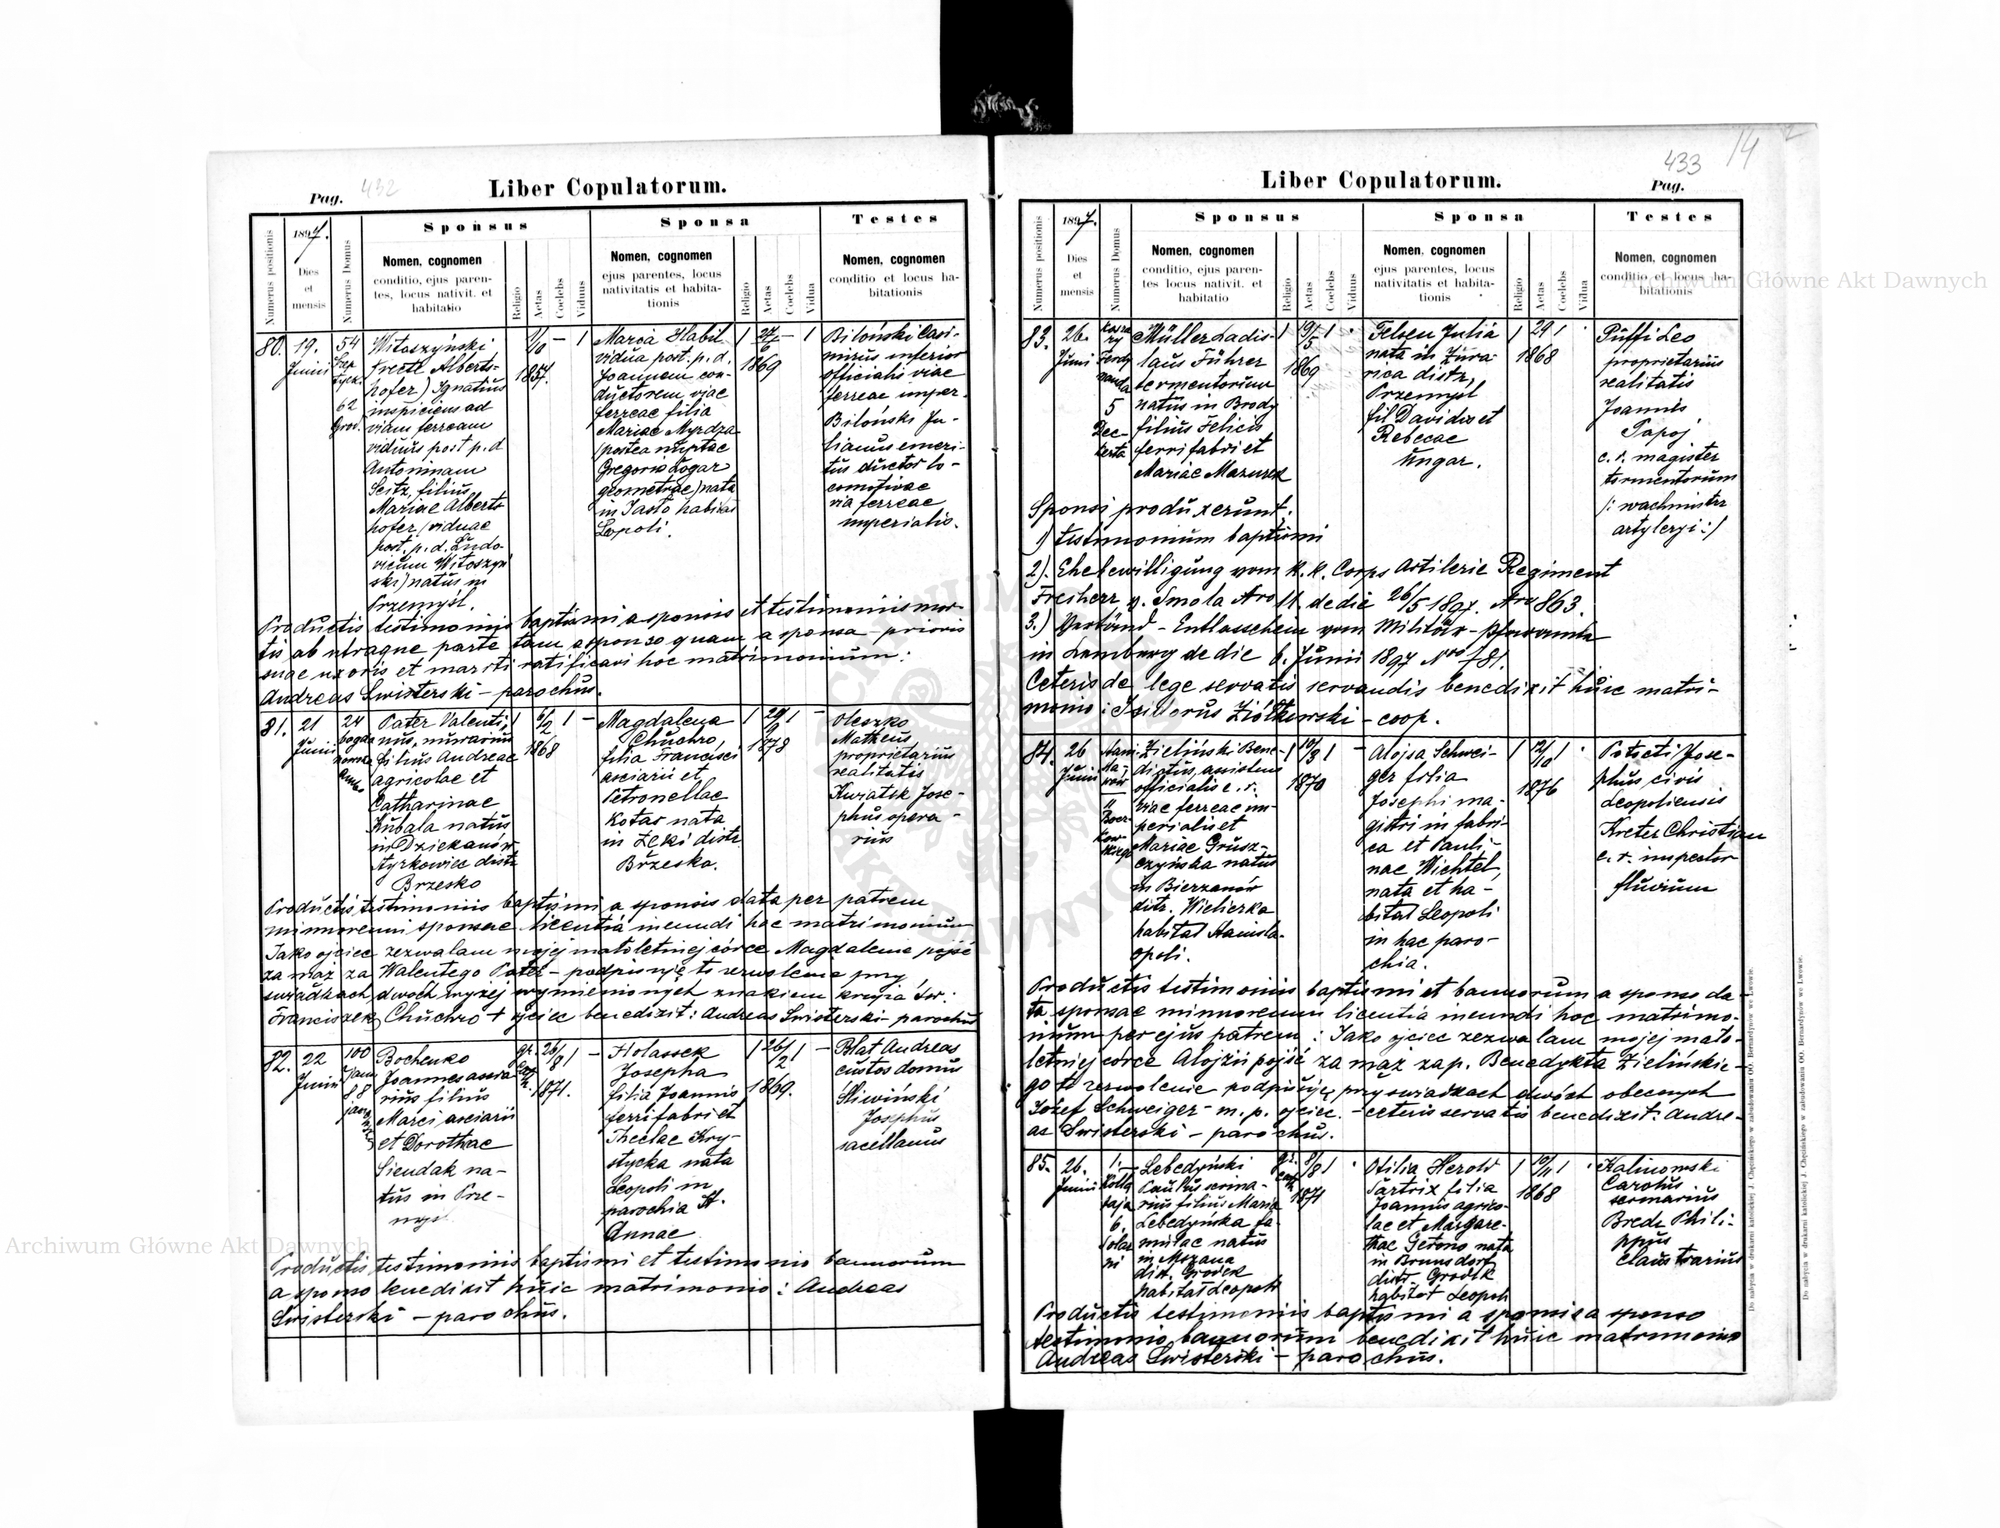 432
Pag.
Liber Copulatorum.
Numerus positionis
1897.
Dies
et
mensis
Numerus Domus
Sponsus
Nomen, cognomen
conditio, ejus paren-
tes, locus nativit. et
habitatio
Religio
Aetas
Coelebs
Viduus
Sponsa
Nomen, cognomen
ejus parentes, locus
nativitatis et habita-
tionis
Religio
Aetas
Coelebs
Vidua
Testes
Nomen, cognomen
conditio et locus ha-
bitationis
80.
19.
Junii
54
62
Grod.
Witoszyński
(recte Alberts-
hofer) Ignatius
inspiciens ad
viam ferream
viduus post p. d.
Antoninam
Seitz, filius
Mariae Alberts-
hofer (viduae
post. p. d. Ludo-
vicum Witoszyń-
ski) natus in
Przemyśl.
1857.
Maria Habil
vidua post. p. d.
Joannem con-
ductorem viae
ferreae filia
Mariae Myrdza
(postea nuptae
Gregorio Logar
geometrae) nata
in Jasło habitat
Leopoli.
1869
Biloński Casi-
mirus inferior
officialis viae
ferreae imper.
Biloński Ju-
lianus emeri-
tus director lo-
comotivae
via ferreae
imperialis.
Productis testimoniis baptismi a sponsis et testimoniis mor-
tis ab utraque parte tam a sponso quam a sponsa - prioris
suae uxoris et mariti ratificavi hoc matrimonium:
Andreas Swisterski - parochus.
81.
21
Junii
24
Pater Valenti-
nus, murarius
filius Andreae
agricolae et
Catharinae
Kubala natus
in Dziekanów
distr.
Brzesko
1868
Magdalena
Chuchro,
filia Francisci
asciarii et
Petronellae
Kotas nata
in Łęki distr.
Brzeska.
1878
Oleszko
Matheus,
proprietarius
realitatis
Kwiatek Jose-
phus opera-
rius
Productis testimoniis baptismi a sponsis data per patrem
minorenni sponsae licentia ineundi hoc matrimonium
Jako ojciec zezwalam mojej małoletniej córce Magdalenie pójść
za mąż za Walentego Pater - podpisuję to zezwolenie przy
świadkach dwóch wyżej wymienionych znakiem krzyża św:
Franciszek Chuchro + ojciec benedixit: Andreas Swisterski - parochus
82.
22
Junii
100
88
Bochenko
Joannes ascia-
rius filius
Marci asciarii
et Dorotheae
Siendak na-
tus in Prze-
myśl
1871.
Holassek
Josepha
filia Joannis
ferrifabri et
Theclae Kry-
stycka nata
Leopoli in
parochia St.
Annae
1869.
Blat Andreas
custos domus
Śliwiński
Josephus
sacellanus
Productis testimoniis baptismi et testimonio bannorum
a sponso benedixit huic matrimonio: Andreas
Swisterski - parochus.
433
14
Liber Copulatorum.
Pag.
Numerus positionis
1897.
Dies
et
mensis
Numerus Domus
Sponsus
Nomen, cognomen
conditio, ejus paren-
tes locus nativit. et
habitatio
Religio
Aetas
Coelebs
Viduus
Sponsa
Nomen, cognomen
ejus parentes, locus
nativitatis et habita-
tionis
Religio
Aetas
Coelebs
Vidua
Testes
Nomen, cognomen
conditio, et locus ha-
bitationis
83.
26.
Junii
5
Müller Ladis-
laus Führer
tormentorium
natus in Brody
filius Felicis
ferrifabri et
Mariae Mazurek
1869
Felsen Julia
nata in Żura-
wica distr.
Przemyśl
fil. Davidis et
Rebecae
Ungar.
1868
Puffi Leo
proprietarius
realitatis
Joannes
Papoj
c. r. magister
tormentorum
(: wachmistrz
artyleryi :)
Sponsi produxerunt:
1) testimonium baptismi
2). Ehebewilligung vom k. k. Corps Artilerie Regiment
Freiherr v. Smola Nro 11. de die 26/5 1897. Nro 863.
3.) Verbänd - Entlasschein vom Militär - Pfarramte
in Lemberg de die 6. Junii 1897 Nro 781.
Ceteris de lege servatis servandis benedixit huic matri-
monio: Isidorus Ziółkowski - coop.
84.
26
Junii
Zieliński Bene-
dictus, assistens
officialis c. r.
viae ferreae im-
perialis et
Mariae Grusz-
czyńska natus
in Bierzanów
distr. Wieliczka
habitat Stanisla-
opoli.
1870
Alojsa Schwei-
ger filia
Josephi ma-
gistri in fabri-
ca et Pauli-
nae Wichtel,
nata et ha-
bitat Leopoli
in hac paro-
chia.
1876
Potocti Jose-
phus civis
Leopoliensis
Kreter Christian
c. r. inspector
fluvium
Productis testimoniis baptismi et bannorum a sponso da-
ta sponsae minorenni licentia ineundi hoc matrimo-
nium per ejus patrem: Jako ojciec zezwalam mojej mało-
letniej córce Alojzii pójść za mąż zap. Benedykta Zielińskie-
go to zezwolenie podpisuję przy świadkach dwóch obecnych
Józef Schweiger - m. p. ojciec. - ceteris servatis benedixit: Andre-
as Swisterski - parochus.
85.
26.
Junii
1.
6.
Lebedyński
Paulus scrina-
rius filius Maria
Lebedyńska fa-
mulae natus
in Mszana
dist. Grodek
habitat Leopoli
1871
Otilia Herold
Sartrix filia
Joannis agrico-
lae et Margare-
thae Getons nata
in Brunsdorf
distr. Grodek
habitat Leopoli
1868
Kalinowski
Carolus
scrinarius
Brede Phili-
ppus
claustrarius
Productis testimoniis baptismi a sponsis a sponso
testimonio bannorum benedixit huic matrimonio
Andreas Swisterski - parochus.
Do nabycia w drukarni katolickiej J. Chęcińskiego w zabudowaniu OO. Bernardynów we Lwowie.
Do nabycia w drukarni katolickiej J. Chęcińskiego w zabudowaniu OO. Bernardynów we Lwowie.
Archiwum Główne Akt Dawnych
Archiwum Główne Akt Dawnych
ARCHIWUM
AKT DAWNYCH